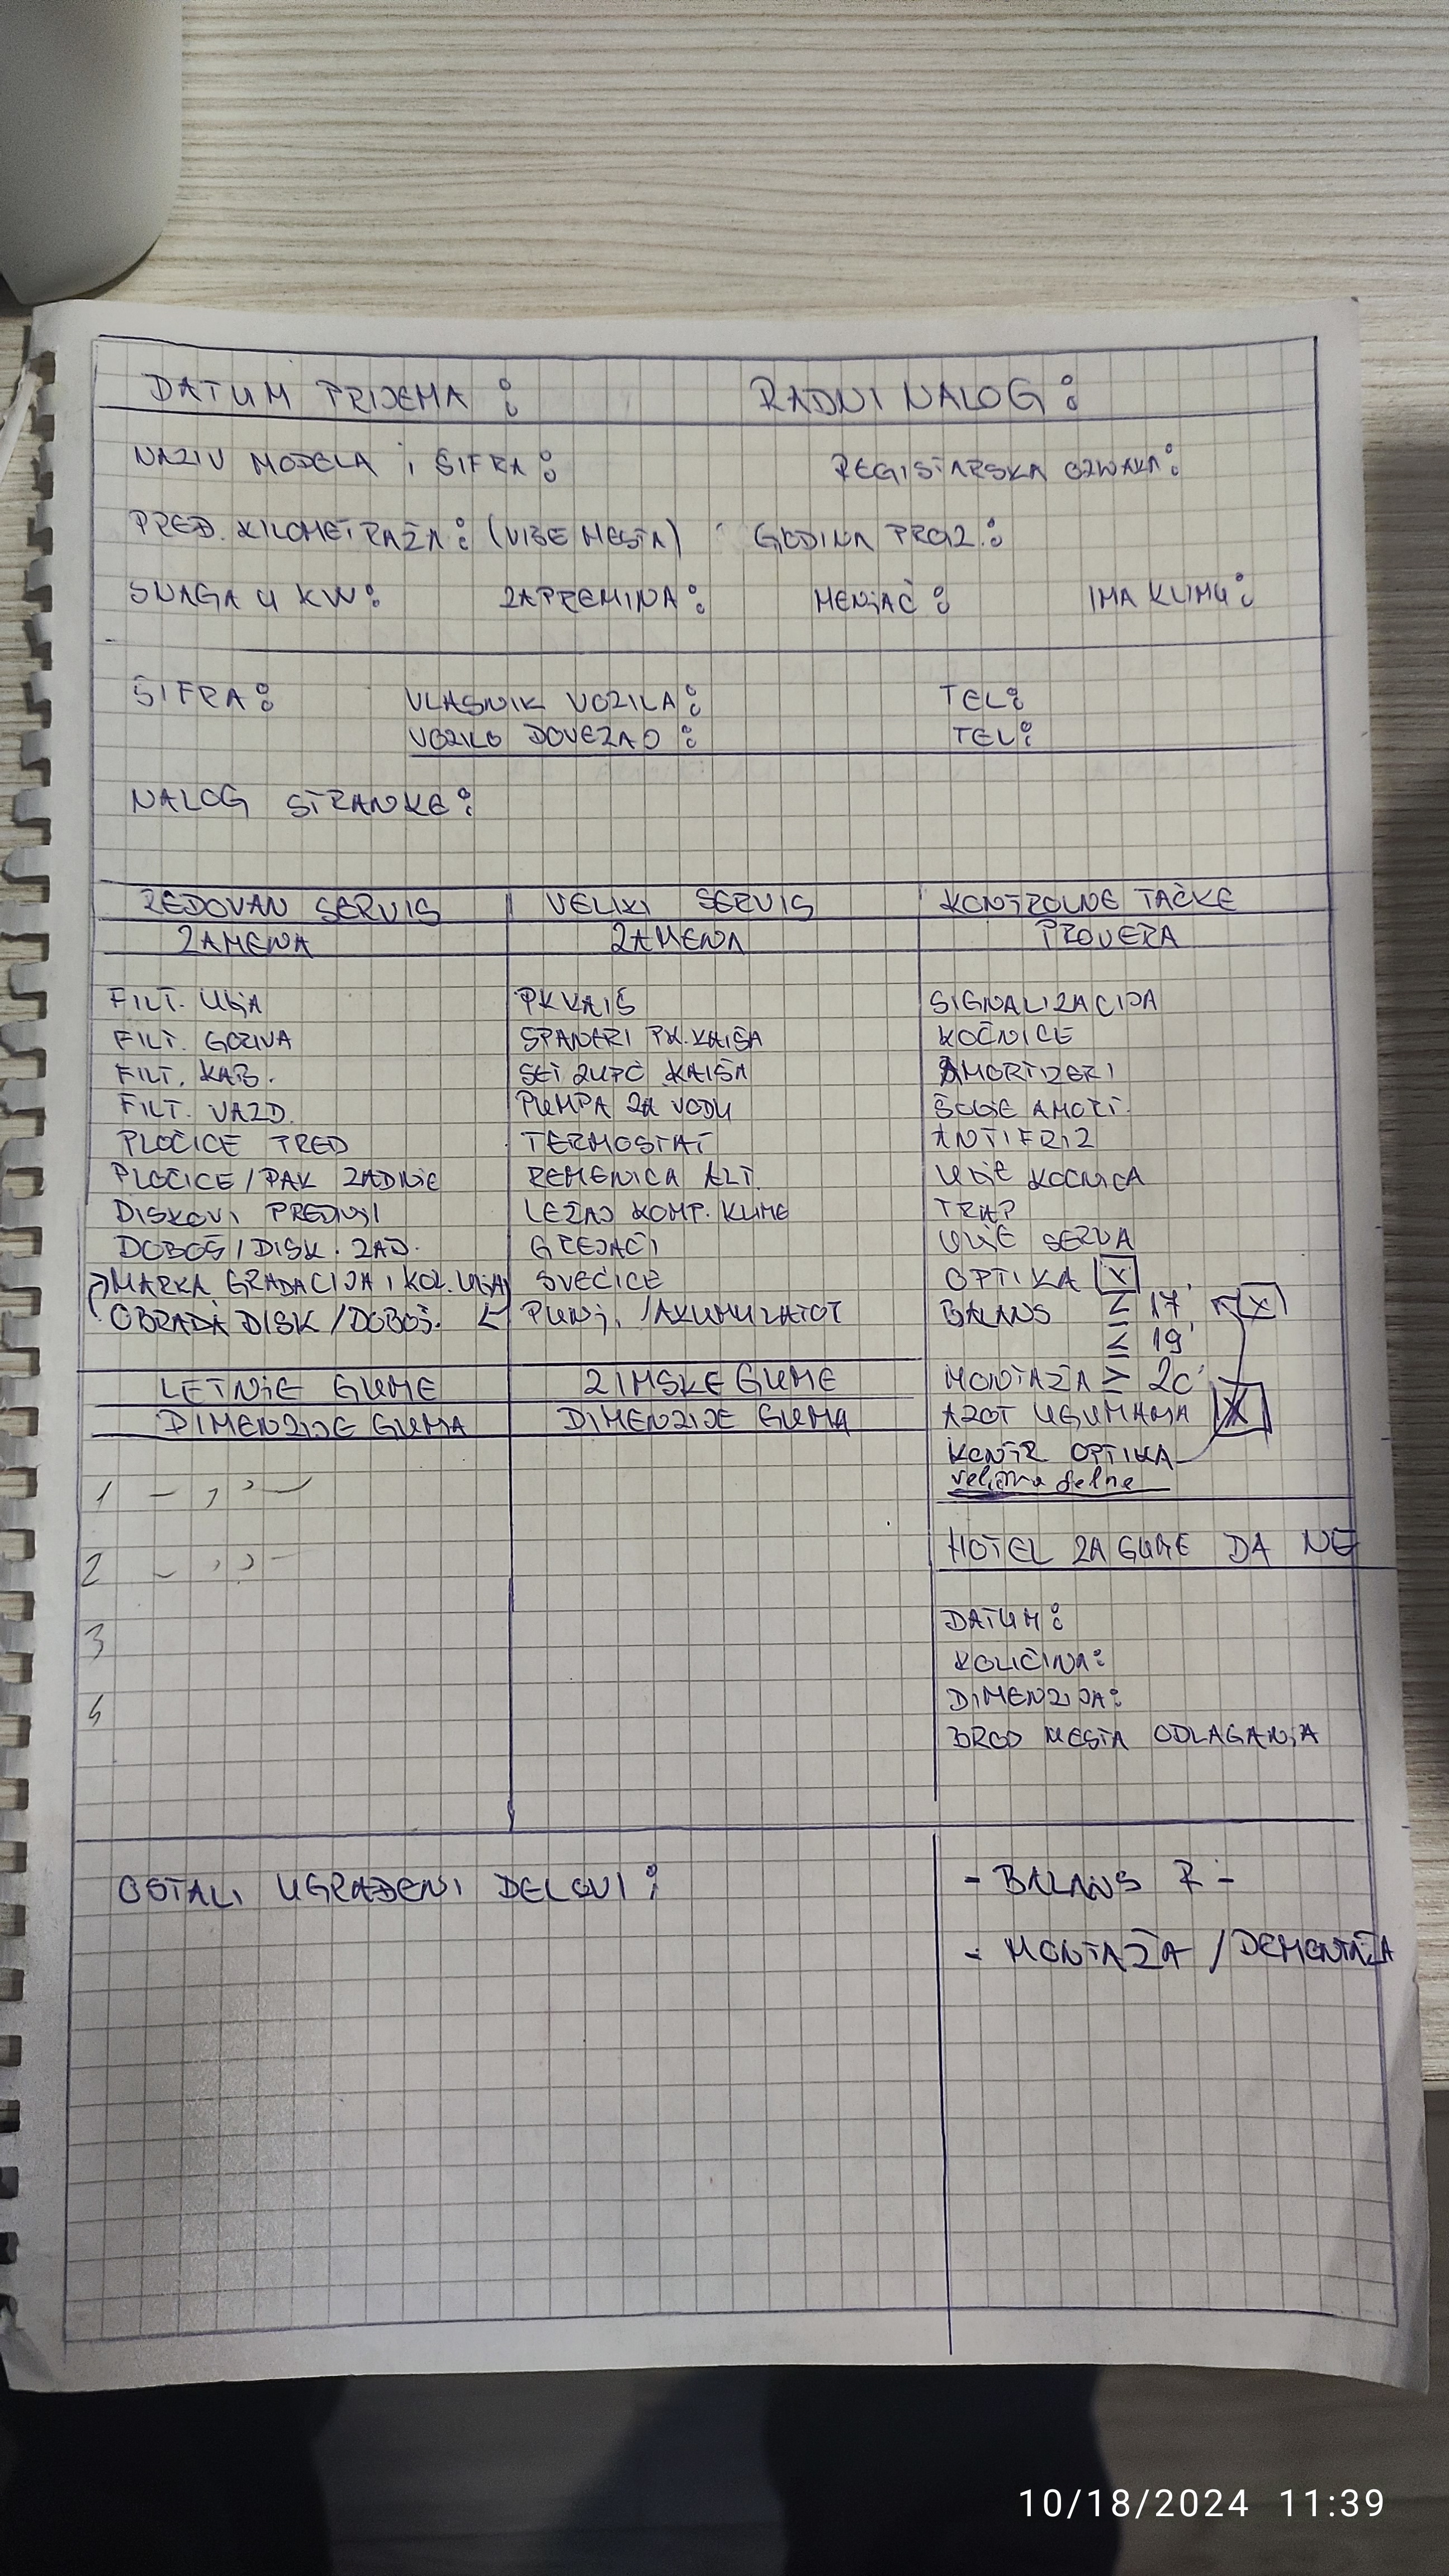 DATUM PRIJEMA : RADNI NALOG :
NAZIV MODELA i ŠIFRA : REGISTARSKA OZNAKA :
PRED. KILOMETRAŽA : (VIŠE MESTA) GODINA PROIZ. :
SNAGA U KW : ZAPREMINA : MENJAČ : IMA KLIMU :
ŠIFRA : VLASNIK VOZILA : TEL :
VOZILO DOVEZAO : TEL :
NALOG STRANKE :
REDOVAN SERVIS
ZAMENA
FILT. ULJA
FILT. GORIVA
FILT. KAB.
FILT. VAZD.
PLOČICE PRED
PLOČICE / PAK ZADNJE
DISKOVI PREDNJI
DOBOŠ / DISK. ZAD.
MARKA, GRADACIJA i KOL. ULJA
OBRADA DISK / DOBOŠ.
VELIKI SERVIS
ZAMENA
PK KAIŠ
ŠPANERI PK. KAIŠA
SET ZUPČ KAIŠA
PUMPA ZA VODU
TERMOSTAT
REMENICA ALT.
LEŽAJ KOMP. KLIME
GREJAČI
SVEĆICE
PUNJ. / AKUMULATOT
KONTROLNE TAČKE
PROVERA
SIGNALIZACIJA
KOČNICE
AMORTIZERI
ŠOLJE AMORT.
ANTIFRIZ
ULJE KOCNICA
TRAP
ULJE SERVA
OPTIKA X
BALANS ≤ 17' (X)
≤ 19'
MONTAŽA ≥ 20'
AZOT U GUMAMA X
KONTR OPTIKA
velicina felne
LETNJE GUME
DIMENZIJE GUMA
1 - , , -
2 - , , -
3
4
ZIMSKE GUME
DIMENZIJE GUMA
HOTEL ZA GUME DA NE
DATUM :
KOLIČINA :
DIMENZIJA :
BROJ MESTA ODLAGANJA
OSTALI UGRAĐENI DELOVI :
- BALANS R -
- MONTAŽA / DEMONTAŽA
10/18/2024 11:39